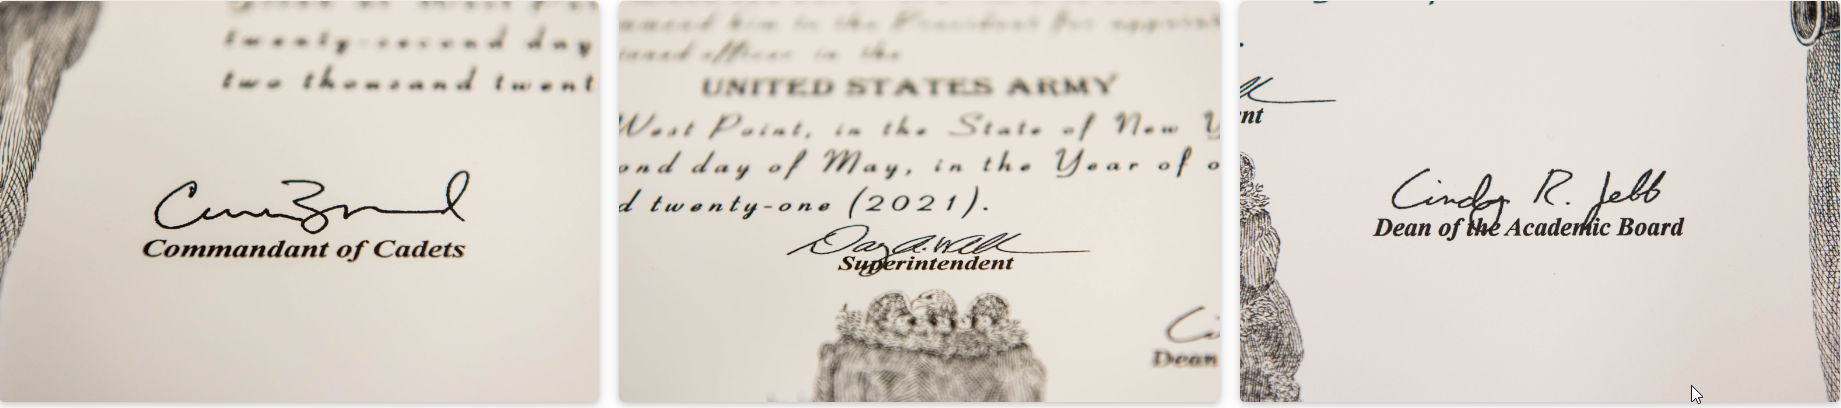 twenty-second day
two thousand twent
Commandant of Cadets
in the President for appoint
officer in the
UNITED STATES ARMY
West Point, in the State of New Y
ond day of May, in the Year of o
d twenty-one (2021).
Superintendent
Ci
Dean
nt
Cindy R. Jebb
Dean of the Academic Board